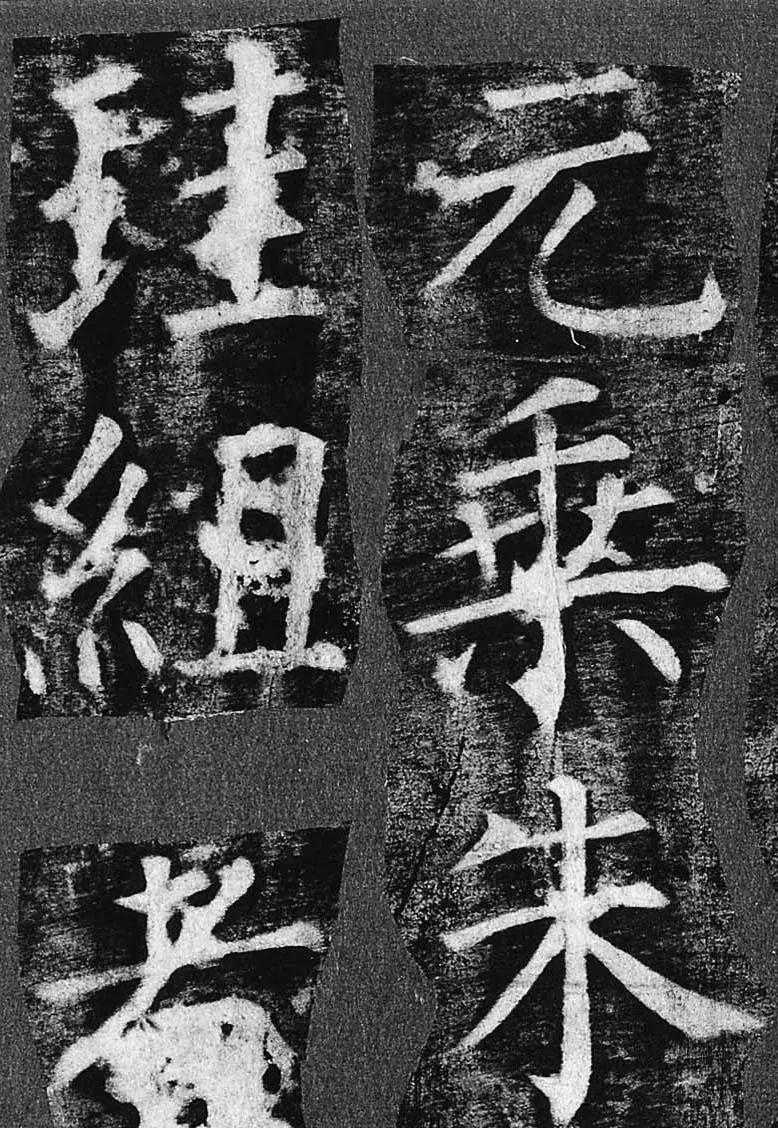 元乘朱
珪組